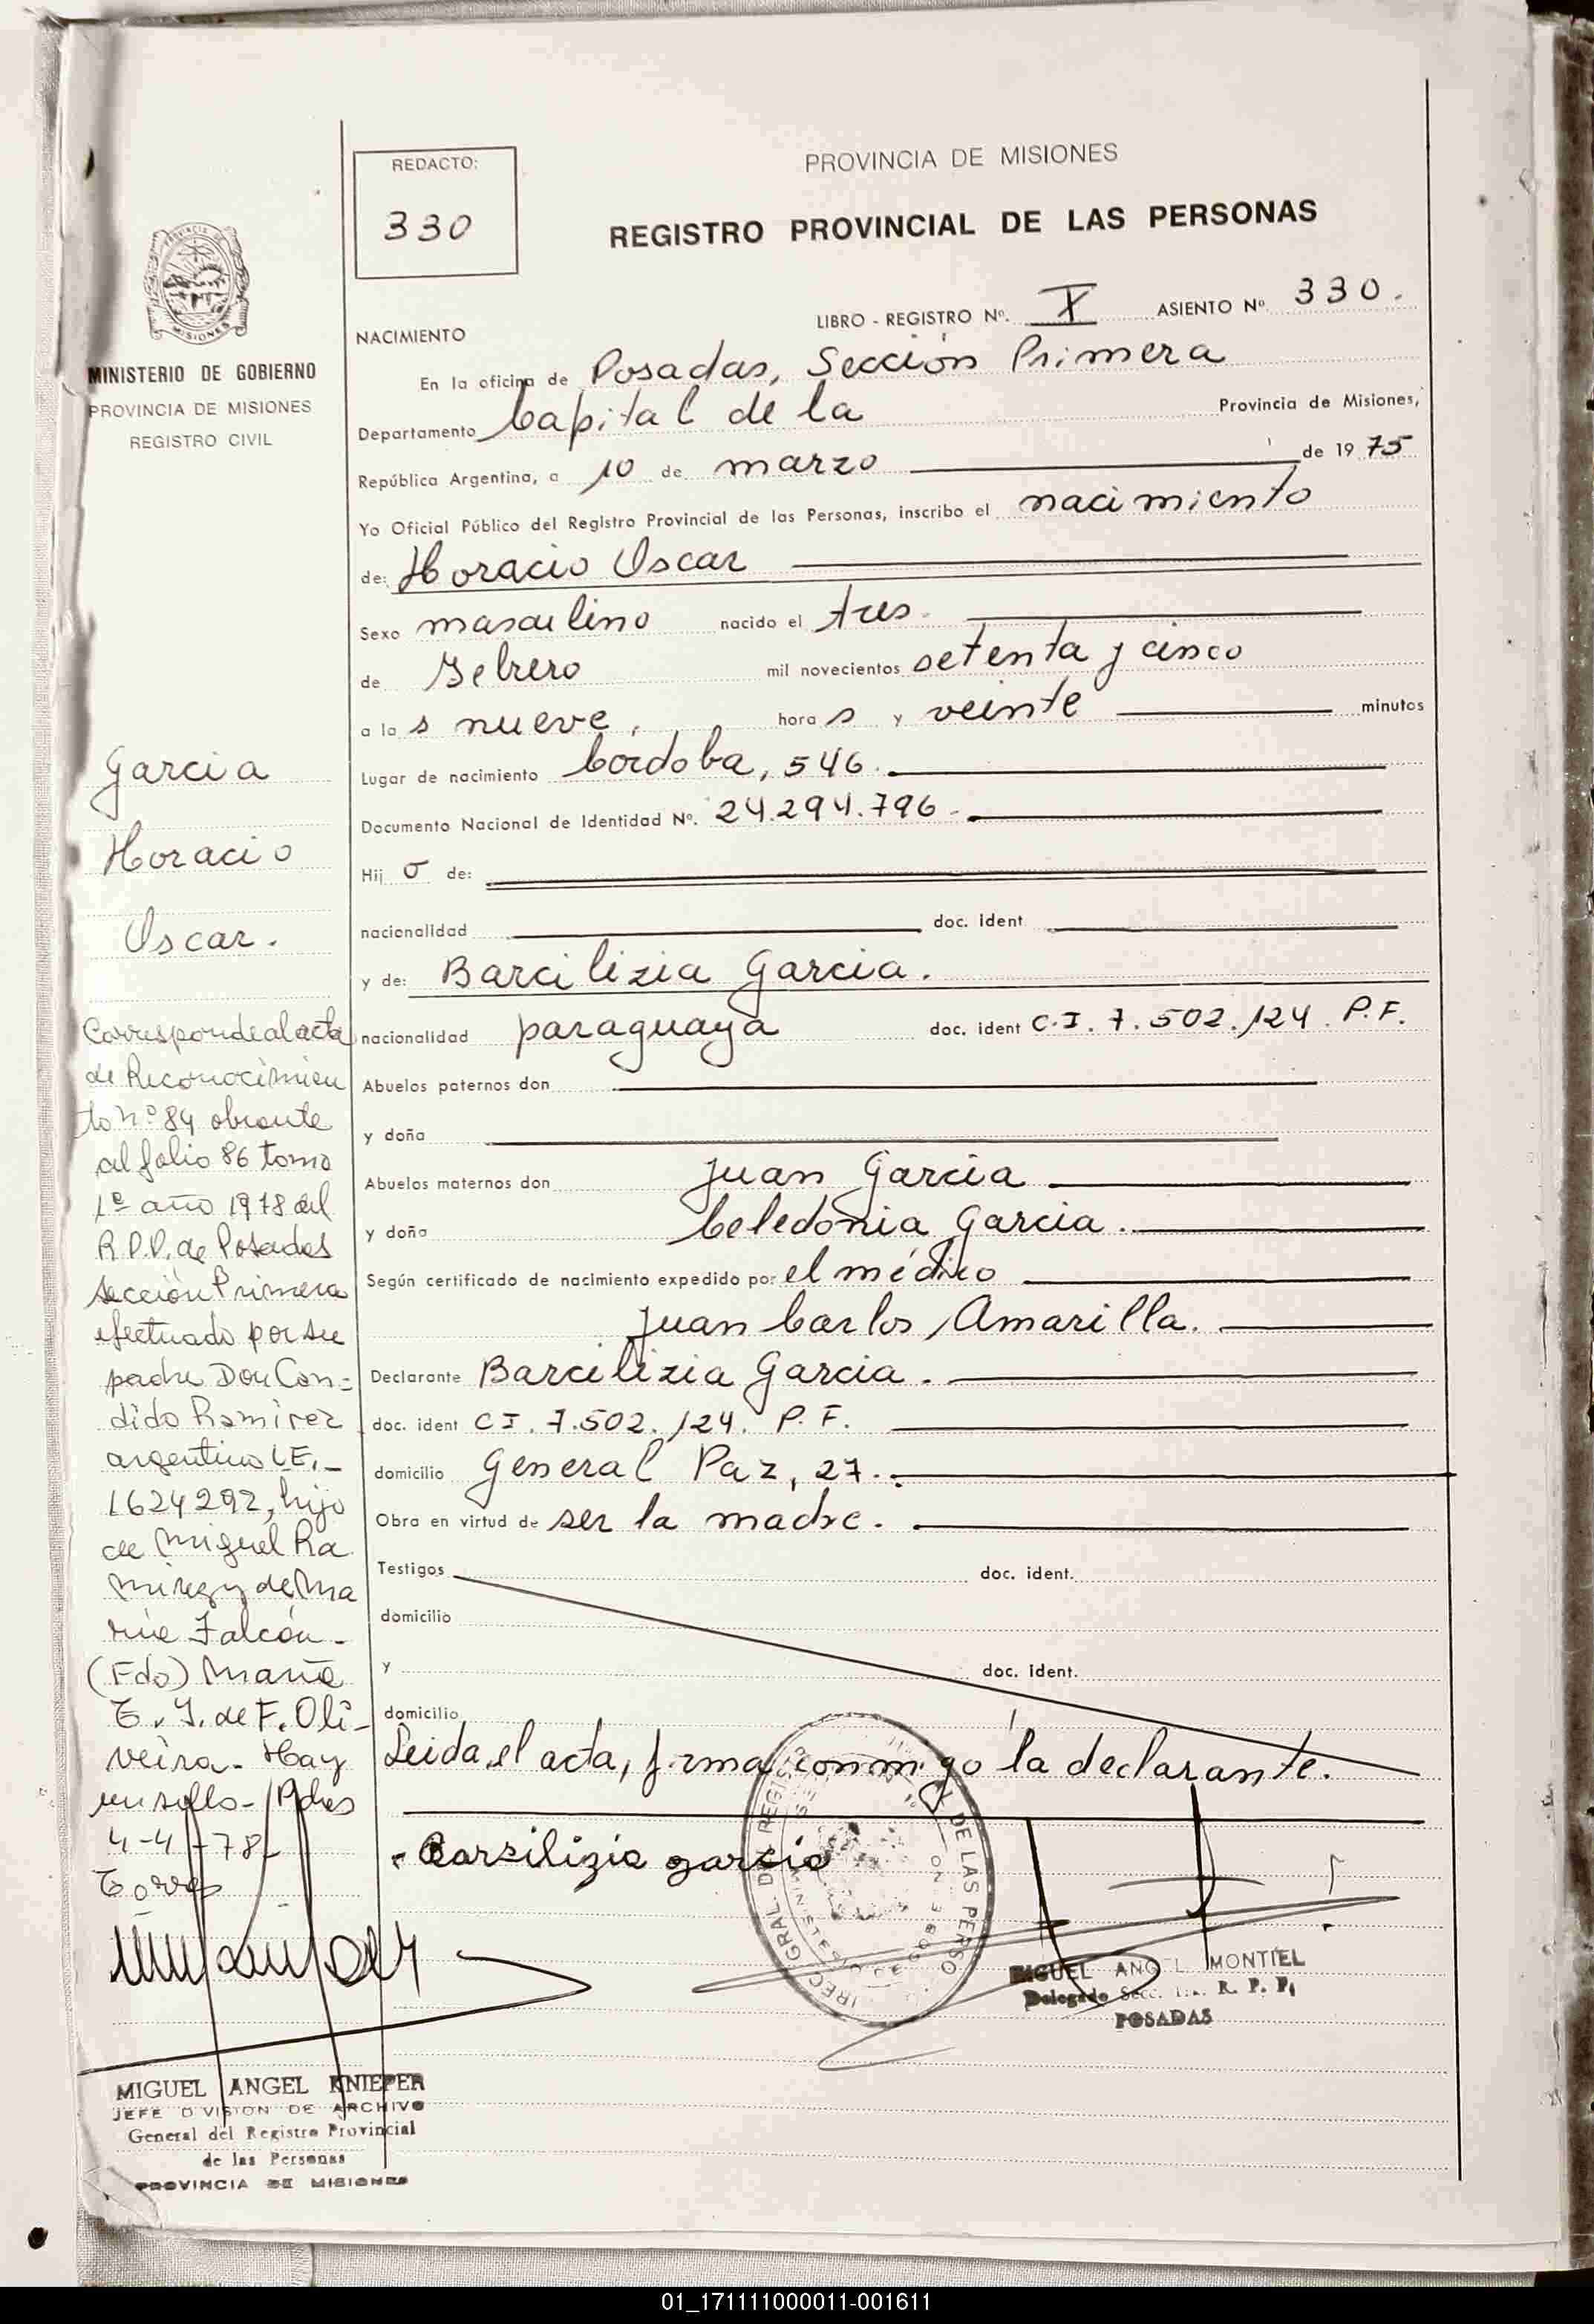 REDACTO:
330
PROVINCIA DE MISIONES
REGISTRO PROVINCIAL DE LAS PERSONAS
LIBRO - REGISTRO Nº. I ASIENTO Nº 330.
NACIMIENTO
En la oficina de Posadas, Sección Primera
Departamento Capital de la Provincia de Misiones,
República Argentina, a 10 de marzo de 1975
Yo Oficial Público del Registro Provincial de las Personas, inscribo el nacimiento
de: Horacio Oscar
Sexo masculino nacido el tres
de Febrero mil novecientos setenta y cinco
a las nueve, horas y veinte minutos
Lugar de nacimiento Córdoba, 546.
Documento Nacional de Identidad Nº. 24.294.796.
Hijo de:
nacionalidad doc. ident
y de: Barcilizia Garcia.
nacionalidad paraguaya doc. ident C.I. 7.502.124. P.F.
Abuelos paternos don
y doña
Abuelos maternos don Juan Garcia
y doña Celedonia Garcia.
Según certificado de nacimiento expedido por el médico
Juan Carlos Amarilla.
Declarante Barcilizia Garcia.
doc. ident CI. 7.502.124. P.F.
domicilio General Paz, 27.
Obra en virtud de ser la madre.
Testigos doc. ident.
domicilio
y doc. ident.
domicilio
Leida el acta, firma conmigo la declarante.
Barsilizia garcia
MIGUEL ANGEL MONTIEL
Delegado Secc. 1ra. R. P. P.
POSADAS
MISIONES
MINISTERIO DE GOBIERNO
PROVINCIA DE MISIONES
REGISTRO CIVIL
Garcia
Horacio
Oscar.
Corresponde al acta
de Reconocimien
to nº 84 obrante
al folio 86 tomo
1º año 1978 del
R.P.P. de Posadas
Sección Primera
efectuado por su
padre Don Can-
dido Ramirez
argentino L.E.
1624292, hijo
de Miguel Ra
mirez y de Ma
ria Falcón-
(Fdo) Maria
E. Y. de F. Oli-
veira- Hay
un sello- Pdas
4-4-78-
Torres
MIGUEL ANGEL KNIEPER
JEFE DIVISION DE ARCHIVO
General del Registro Provincial
de las Personas
PROVINCIA DE MISIONES
01_171111000011-001611